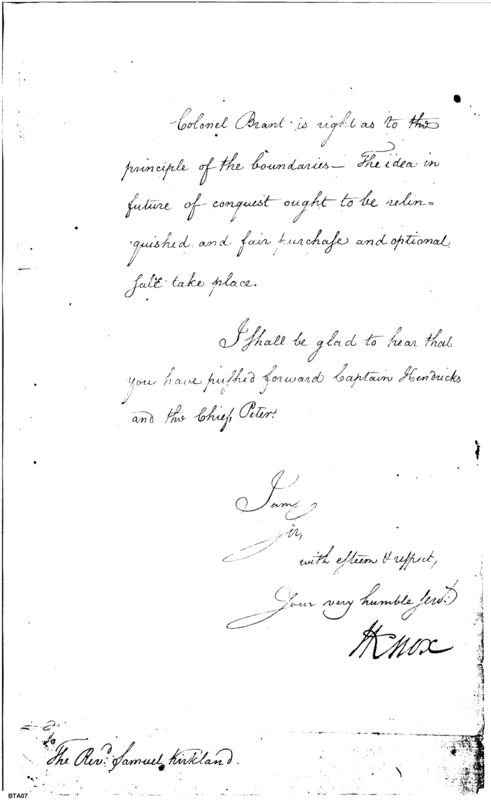 Colonel Brant is right as to the
principle of the boundaries— The idea in
future of conquest ought to be relin=
quished and fair purchase and optional
sale take place.
I shall be glad to hear that
you have pushed forward Captain Hendricks
and the Chief, Peter.
I am,
Sir,
with esteem & respect,
Your very humble Servt.
HKnox
The Revd. Samuel Kirkland.
BTA07